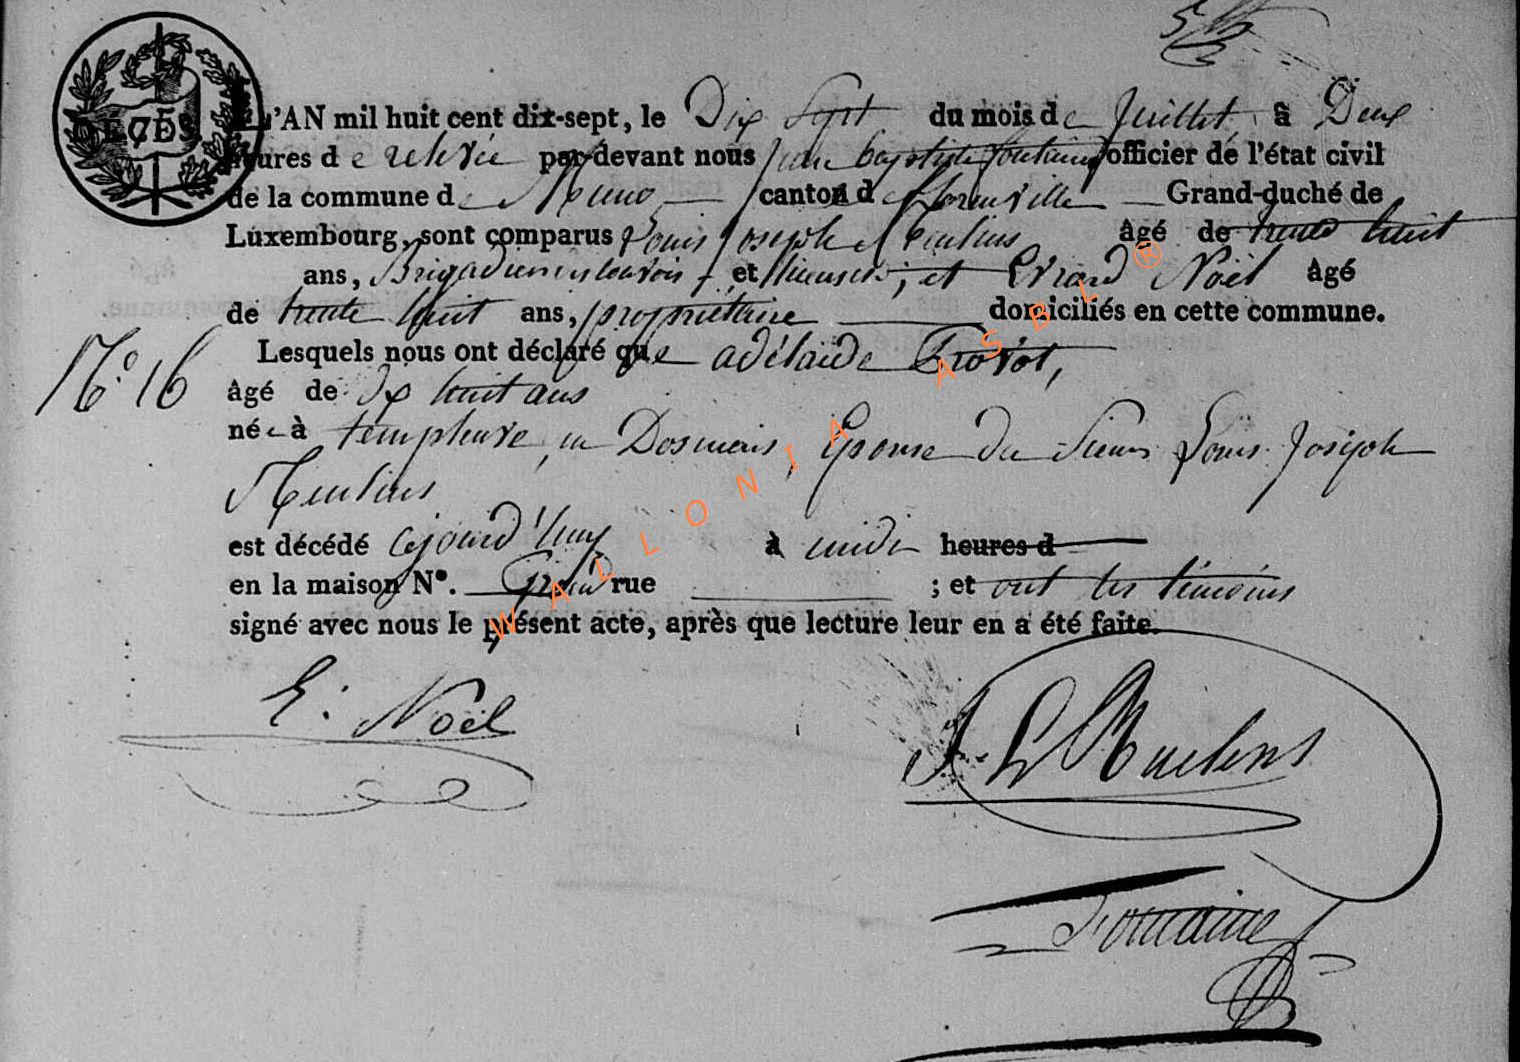 DÉCÈS.
L'AN mil huit cent dix-sept, le Dix Sept du mois de Juillet à Deux
heures de relevée par-devant nous jean baptiste fontaine officier de l'état civil
de la commune de Muno canton de florenville Grand-duché de
Luxembourg, sont comparus Louis Joseph Meulens âgé de trente huit
ans, Brigadier et et Evrard Noël âgé
de trente huit ans, propriétaire domiciliés en cette commune.
Lesquels nous ont déclaré que adélaïde
N.° 16
âgé de dix huit ans
née à Epouse du Sieur Louis Joseph
Meulens
est décédé cejourd'huy à midi heures d
en la maison N°. Grand rue ; et ont les témoins
signé avec nous le présent acte, après que lecture leur en a été faite.
E: Noël
J. L. Meulens
Fontaine
WALLONIA ASBL®